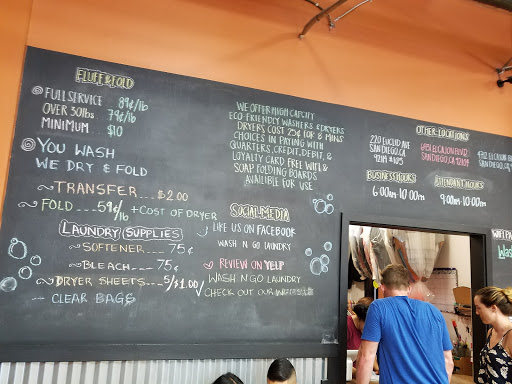 FLUFF & FOLD
FULL SERVICE 89¢/lb
OVER 30lbs 79¢/lb
MINIMUM $10
YOU WASH
WE DRY & FOLD
~TRANSFER___$2.00
~FOLD___59¢/lb + COST OF DRYER
LAUNDRY SUPPLIES
~SOFTENER---75¢
~BLEACH---75¢
~DRYER SHEETS---5/$1.00
-- CLEAR BAGS
WE OFFER HIGH CAPCITY
ECO-FRIENDLY WASHERS & DRYERS
DRYERS COST 25¢ FOR 8 MINS
CHOICES IN PAYING WITH
QUARTERS, CREDIT, DEBIT, &
LOYALTY CARD FREE WIFI &
SOAP FOLDING BOARDS
AVAILIBLE FOR USE
SOCIAL MEDIA
LIKE US ON FACEBOOK
WASH N GO LAUNDRY
REVIEW ON YELP
WASH N GO LAUNDRY
CHECK OUT OUR
OTHER LOCATIONS
220 EUCLID AVE
SAN DIEGO, CA
92114 #105
SAN DIEGO, CA
SAN DIEGO, CA
BUSINESS HOURS
6:00am-10:00pm
ATTENDANT HOURS
9:00am-10:00pm